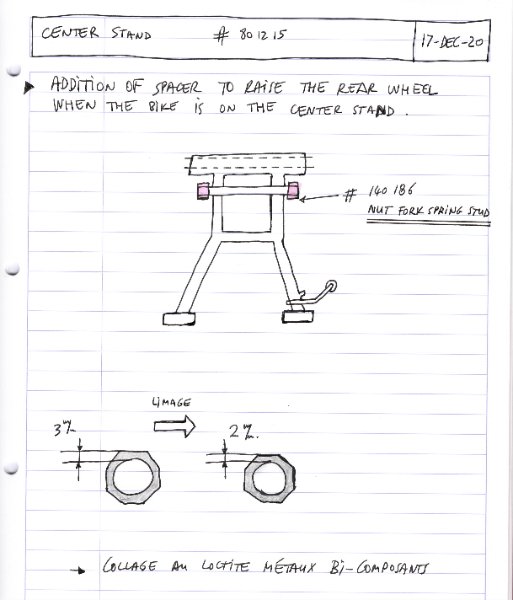 CENTER STAND # 80 12 15
17-DEC-20
ADDITION OF SPACER TO RAISE THE REAR WHEEL
WHEN THE BIKE IS ON THE CENTER STAND.
# 140 186
NUT FORK SPRING STUD
LIMAGE
3%
2%.
COLLAGE AU LOCTITE MÉTAUX BI-COMPOSANTS